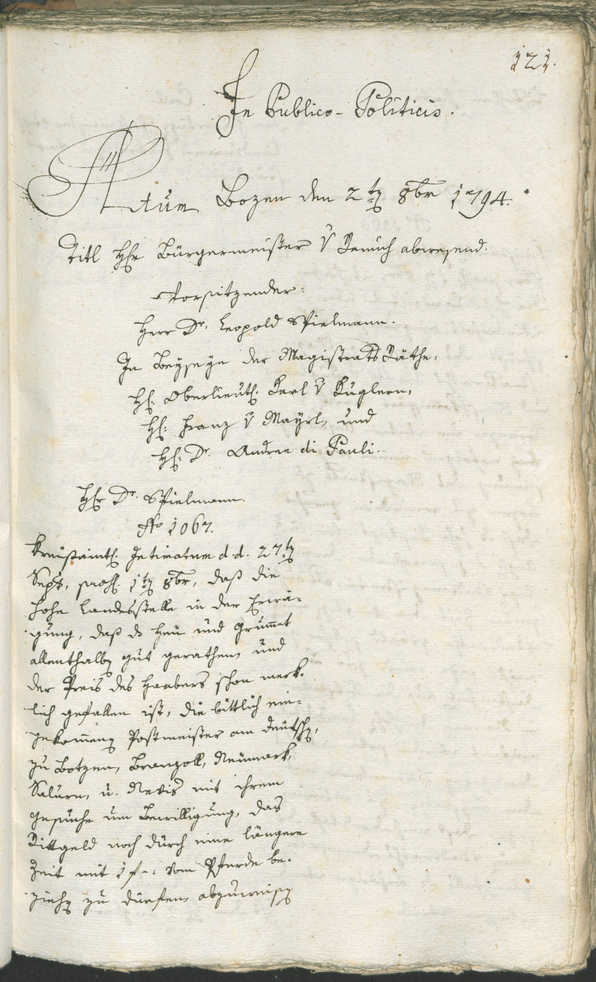 121.
In Publico-Politicis.
Actum Bozen den 2ten 8br 1794.
Titl Hr Bürgermeister v Remich abwesend.
Vorsitzender:
Herr Dr. Leopold Spielmann.
In Beyseye der Magistrats Räthe,
H: Oberlieut: Karl v Kuglern,
H: Franz v Mayrl, und
H: Dr. Andree di Pauli.
Hr Dr. Spielmann.
No 1067.
Kreisamtl. Intimatum d. d. 27ten
Sept, 1ten 8br, daß die
hohe Landesstelle in der Erwä-
gung, daß ds Heu und Grummet
allenthalb gut gerathen und
der Preis des Haabers schon merk-
lich gefallen ist, die bittlich ein-
gekommen Postmeister am deutsch,
zu Botzen, Branzoll, Neumark,
Salurn, u. Nevis mit ihrem
Gesuche um Bewilligung, das
Rittgeld noch durch eine längere
Zeit mit 1 f -: vom Pferde be-
ziehen zu dürfen abzuweisen